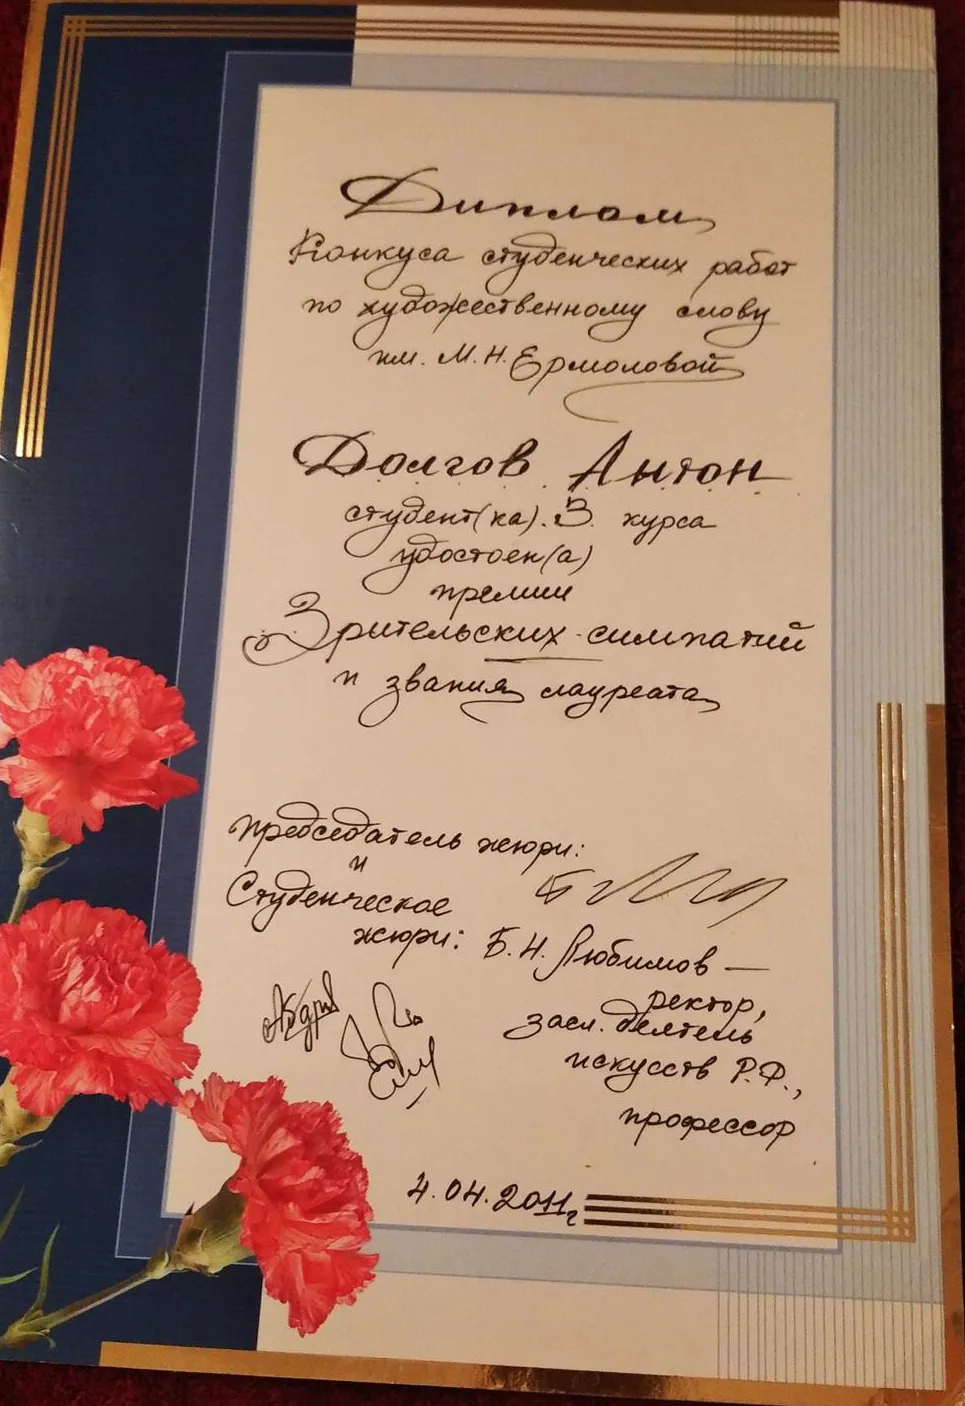 Диплом
Конкуса студенческих работ
по художественному слову
им. М.Н. Ермоловой
Долгов Антон
студент(ка) 3 курса
удостоен(а)
премии
Зрительских симпатий
и звания лауреата
председатель жюри:
и
Студенческое
жюри:
Б.Н. Любимов —
ректор,
засл. деятель
искусств Р.Ф.,
профессор
4.04.2011г